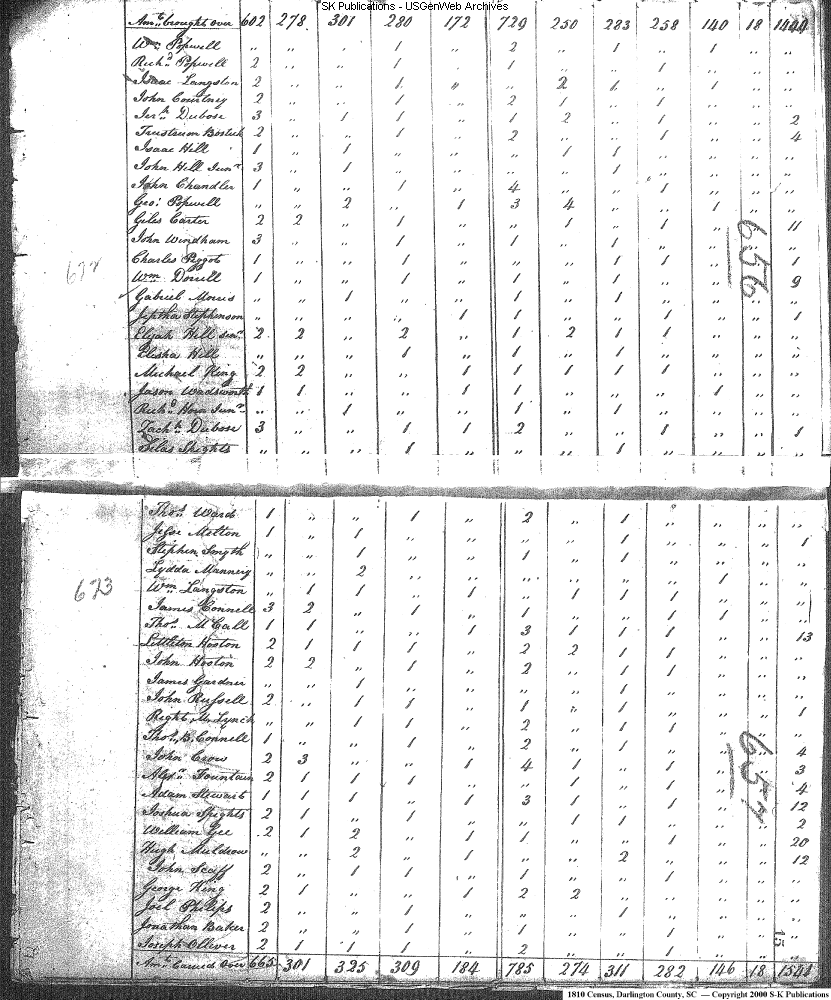 SK Publications - USGenWeb Archives
Amt. brought over 602 278 301 280 172 729 250 283 258 140 18 1444
Wm. Popwell " " " 1 " 2 " 1 " 1 " "
Richd. Popwell 2 " " 1 " 1 " " 1 " " "
Isaac Langston 2 " " 1 " " 2 1 " 1 " "
John Courtney 2 " " 1 " 2 1 " 1 " " "
Jerh. Dubose 3 " 1 1 " 1 2 " 1 " " 2
Trustrum Bostick 2 " " 1 " 2 " " 1 " " 4
Isaac Hill 1 " 1 " " " 1 1 " " " "
John Hill Junr. 3 " 1 " " " " 1 " " " "
John Chandler 1 " " 1 " 4 " " 1 " " "
Geo: Popwell " " 2 " 1 3 4 " " 1 " "
Giles Carter 2 2 " 1 " " 1 " 1 " " 11
John Windham 3 " " 1 " 1 " 1 " " " "
Charles Peggot 1 " " 1 " 1 " 1 1 " " 1
Wm. Dorrell 1 " " 1 " 1 " 1 " " " 9
Gabriel Morris " " 1 " " 1 " 1 " " " "
Jeptha Stephenson " " " " 1 1 " 1 " " " 1
Elijah Hill senr. 2 2 " 2 " 1 2 1 1 " " "
Elisha Hill " " " 1 " 1 " 1 " " " "
Michael King 2 2 " " 1 1 1 1 1 " " "
Jason Wadsworth 1 1 " " 1 1 " " " 1 " "
Richd. Horn Junr. " " 1 " " 1 " 1 " " " "
Zachh. Dubose 3 " " 1 1 2 " " 1 " " 1
Silas Spights " " " 1 " " " 1 " " " "
672
656
Thos. Ward 1 " " 1 " 2 " 1 " " " "
Jesse Melton 1 " 1 " " 1 " 1 " " " 1
Stephen Smyth " " 1 " " 1 " 1 " " " "
Lydda Mannery " " 2 " " " " " " 1 " "
Wm. Langston " 1 1 " 1 " 1 1 1 " " "
James Connell 3 2 " 1 " 1 " " 1 1 " "
Thos. McCall 1 1 " " 1 3 1 1 1 " " 13
Littleton Hooton 2 1 1 1 " 2 2 1 1 " " "
John Hooton 2 2 " 1 " 2 " 1 1 " " "
James Gardner " " 1 " " " " 1 " " " "
John Russell 2 " 1 1 " 1 " 1 " " " 1
Right McLynch " " 1 1 " 2 " 1 1 " " "
Thos. B. Connell 1 " " 1 " 2 " 1 " " " 4
John Crow 2 3 " " 1 4 1 " 1 " " 3
Alexr. Fountain 2 1 1 1 " 1 1 " 1 " " 4
Adam Stewart 1 1 1 " 1 3 1 " 1 " " 12
Joshua Spights 2 1 " 1 " " 1 1 " " " 2
William Gee 2 1 2 " 1 1 " " 1 " " 20
Hugh Muldrow " " 2 " 1 " " 2 " " " 12
John Scaff 2 " " 1 " 1 " " 1 " " "
George King 2 1 " " 1 2 2 " " " " "
Joel Philips 2 " " 1 " " " 1 " " " "
Jonathan Baker 2 " " 1 " 1 " " 1 " " "
Joseph Olliver 2 1 1 1 " 2 " " 1 " " "
Amt. Carried Over 665 301 325 309 184 785 274 311 282 146 18 1541
673
657
15
1810 Census, Darlington County, SC — Copyright 2000 S-K Publications